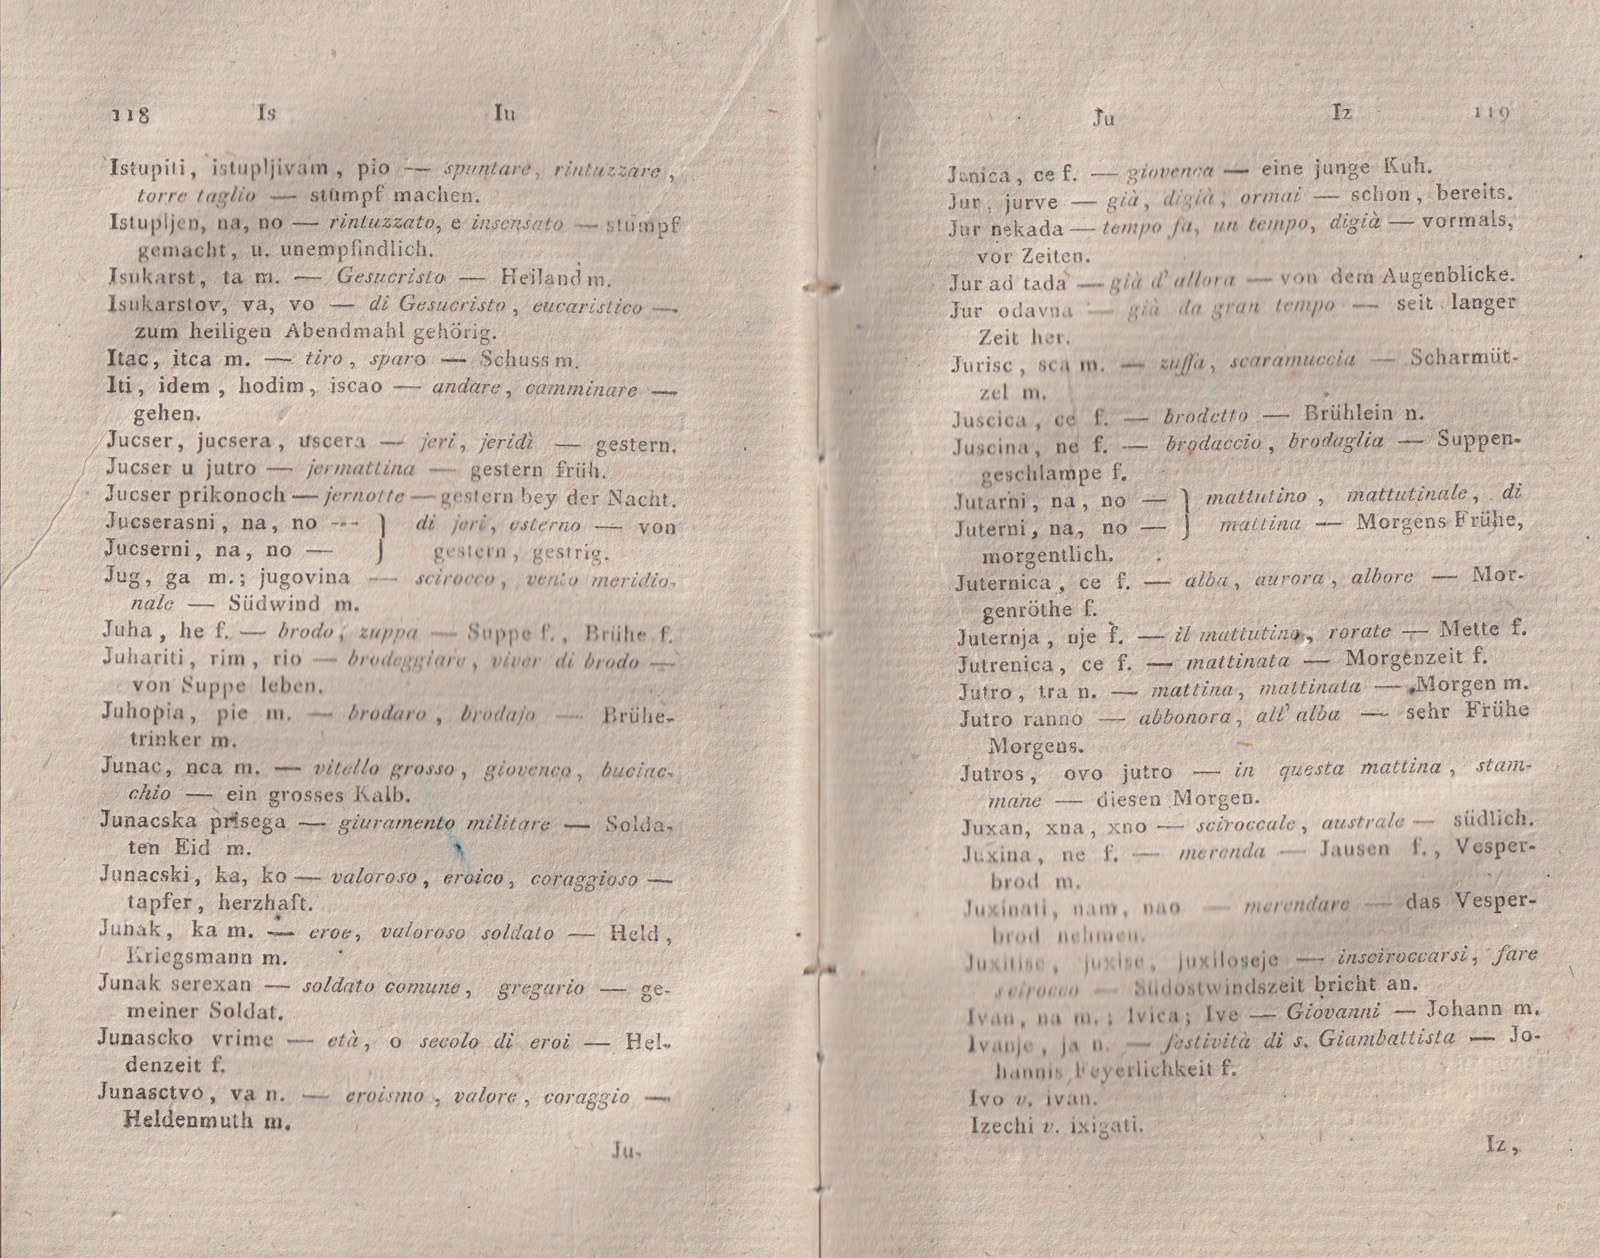 118 Is Iu
Istupiti, istupljivam, pio — spuntare, rintuzzare,
torre taglio — stumpf machen.
Istupljen, na, no — rintuzzato, e insensato — stumpf
gemacht, u. unempfindlich.
Isukarst, ta m. — Gesucristo — Heiland m.
Isukarstov, va, vo — di Gesucristo, eucaristico —
zum heiligen Abendmahl gehörig.
Itac, itca m. — tiro, sparo — Schuss m.
Iti, idem, hodim, iscao — andare, camminare —
gehen.
Jucser, jucsera, uscera — jeri, jeridì — gestern.
Jucser u jutro — jermattina — gestern früh.
Jucser prikonoch — jernotte — gestern bey der Nacht.
Jucserasni, na, no --- } di jeri, esterno — von
Jucserni, na, no — } gestern, gestrig.
Jug, ga m.; jugovina — scirocco, vento meridio-
nale — Südwind m.
Juha, he f. — brodo, zuppa — Suppe f., Brühe f.
Juhariti, rim, rio — brodeggiare, viver di brodo —
von Suppe leben.
Juhopia, pie m. — brodaro, brodajo — Brühe-
trinker m.
Junac, nca m. — vitello grosso, giovenco, buciac-
chio — ein grosses Kalb.
Junacska prisega — giuramento militare — Solda-
ten Eid m.
Junacski, ka, ko — valoroso, eroico, coraggioso —
tapfer, herzhaft.
Junak, ka m. — eroe, valoroso soldato — Held,
Kriegsmann m.
Junak serexan — soldato comune, gregario — ge-
meiner Soldat.
Junascko vrime — età, o secolo di eroi — Hel-
denzeit f.
Junasctvo, va n. — eroismo, valore, coraggio —
Heldenmuth m.
Ju-
Ju Iz 119
Junica, ce f. — giovenca — eine junge Kuh.
Jur, jurve — già, digià, ormai — schon, bereits.
Jur nekada — tempo fa, un tempo, digià — vormals,
vor Zeiten.
Jur ad tada — già d'allora — von dem Augenblicke.
Jur odavna — già da gran tempo — seit langer
Zeit her.
Jurisc, sca m. — zuffa, scaramuccia — Scharmüt-
zel m.
Juscica, ce f. — brodetto — Brühlein n.
Juscina, ne f. — brodaccio, brodaglia — Suppen-
geschlampe f.
Jutarni, na, no — } mattutino, mattutinale, di
Juterni, na, no — } mattina — Morgens Frühe,
morgentlich.
Juternica, ce f. — alba, aurora, albore — Mor-
genröthe f.
Juternja, nje f. — il mattutino, rorate — Mette f.
Jutrenica, ce f. — mattinata — Morgenzeit f.
Jutro, tra n. — mattina, mattinata — Morgen m.
Jutro ranno — abbonora, all' alba — sehr Frühe
Morgens.
Jutros, ovo jutro — in questa mattina, stam-
mane — diesen Morgen.
Juxan, xna, xno — sciroccale, australe — südlich.
Juxina, ne f. — merenda — Jausen f., Vesper-
brod m.
Juxinati, nam, nao — merendare — das Vesper-
brod nehmen.
Juxitise, juxise, juxiloseje — insciroccarsi, fare
scirocco — Südostwindszeit bricht an.
Ivan, na m.; Ivica; Ive — Giovanni — Johann m.
Ivanje, ja n. — festività di s. Giambattista — Jo-
hannis Feyerlichkeit f.
Ivo v. ivan.
Izechi v. ixigati.
Iz,